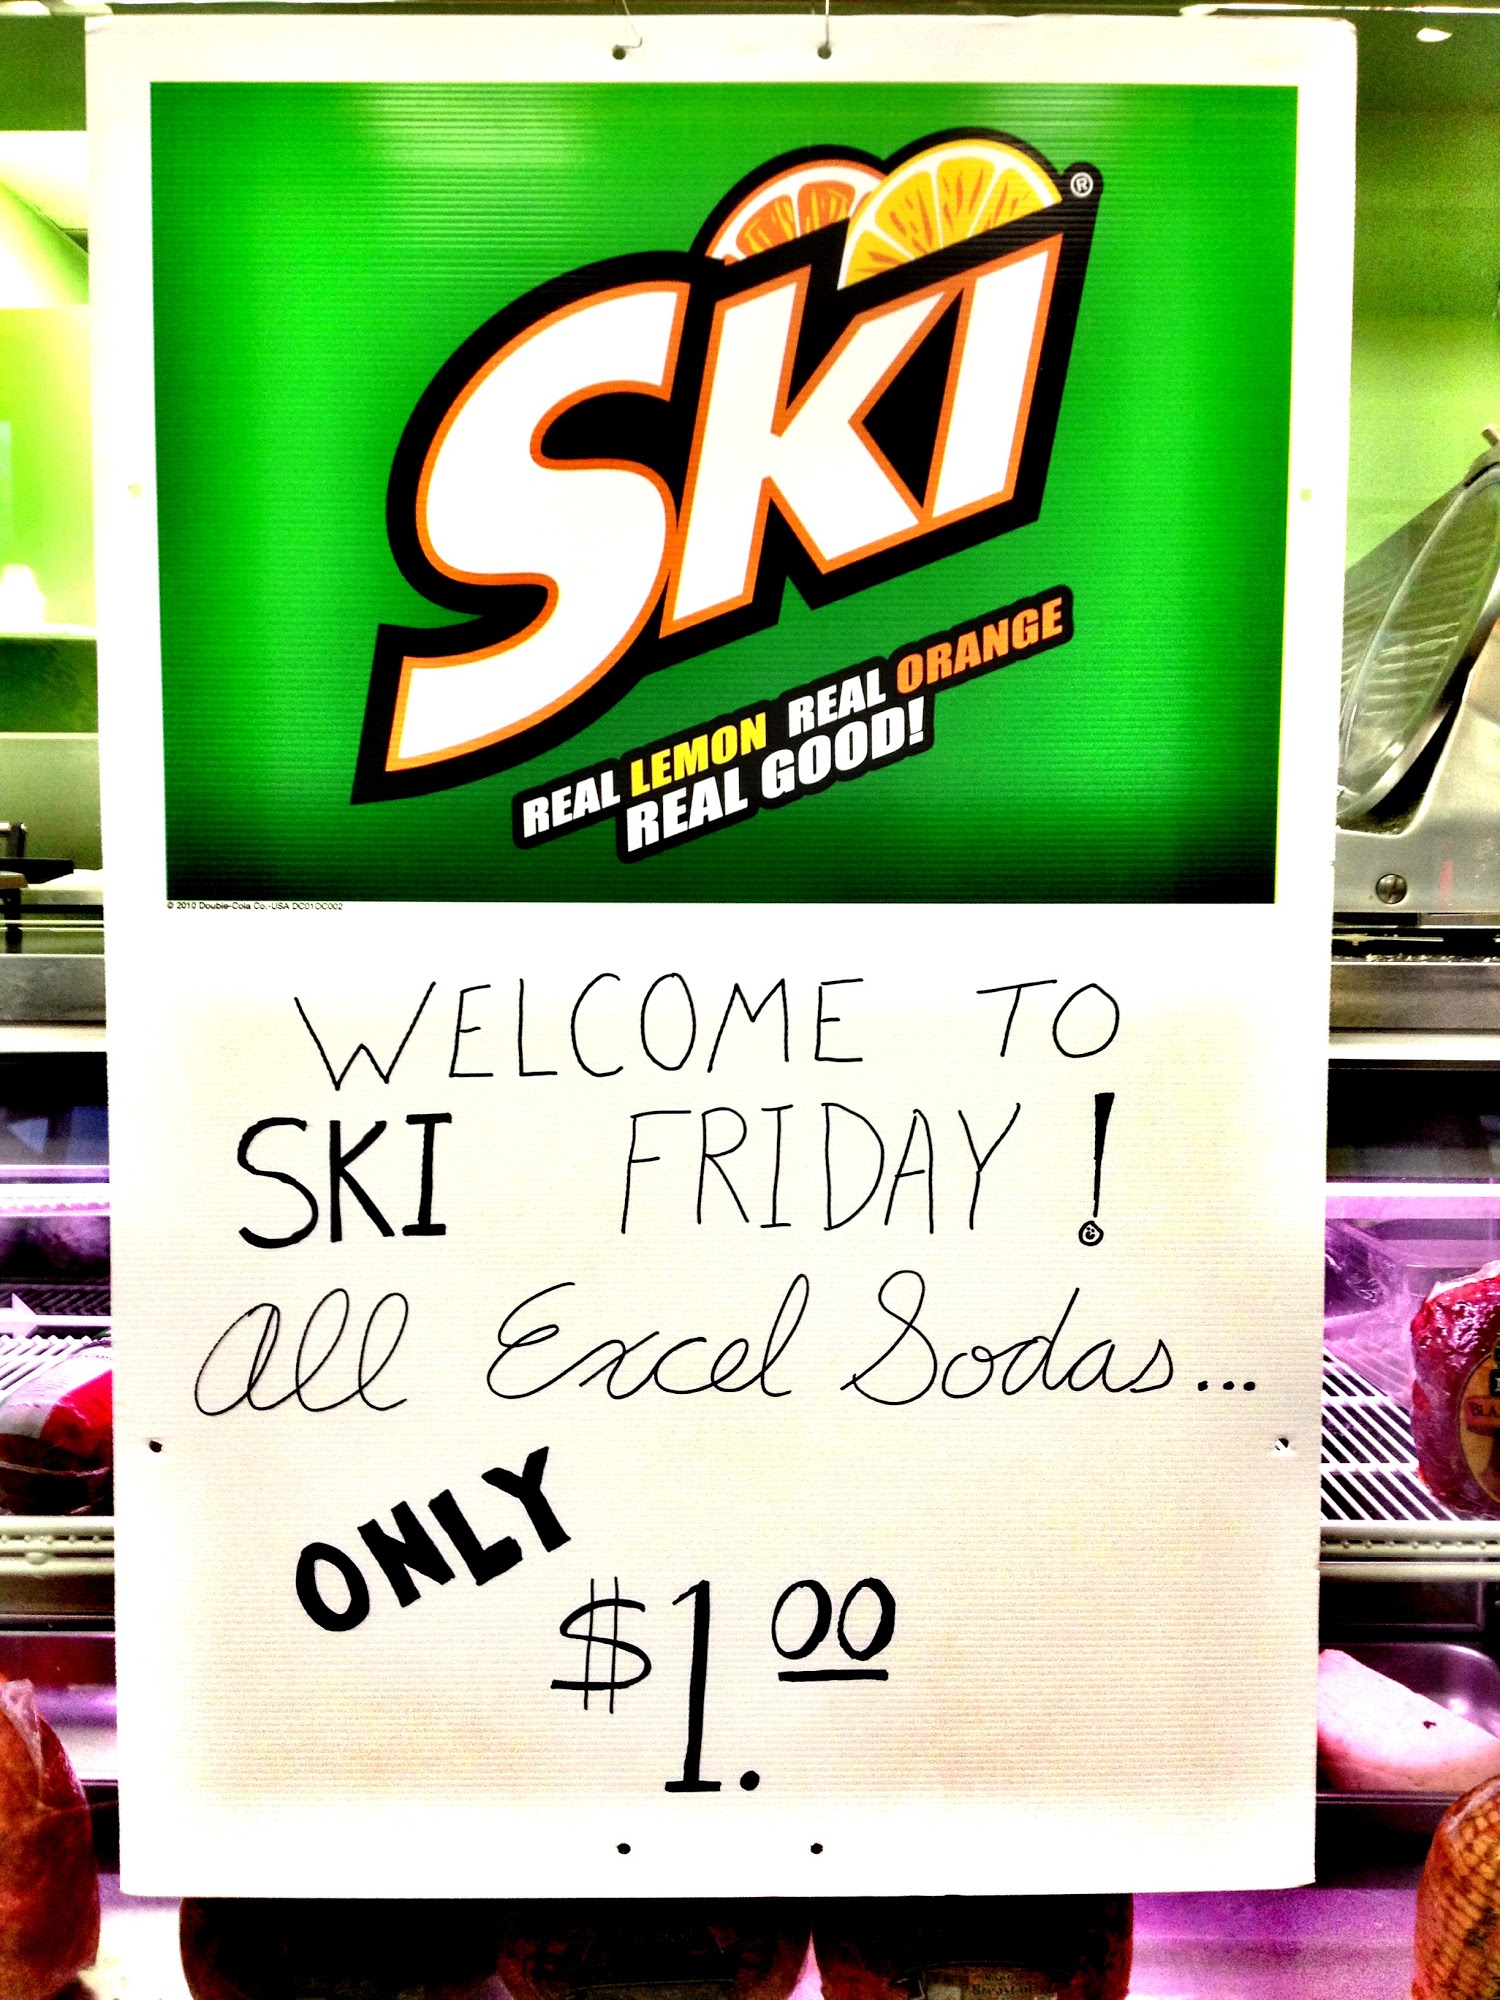 SKI®
REAL LEMON REAL ORANGE
REAL GOOD!
© 2010 Double-Cola Co.-USA DC01DC002
WELCOME TO
SKI FRIDAY!
All Excel Sodas...
ONLY
$1.00